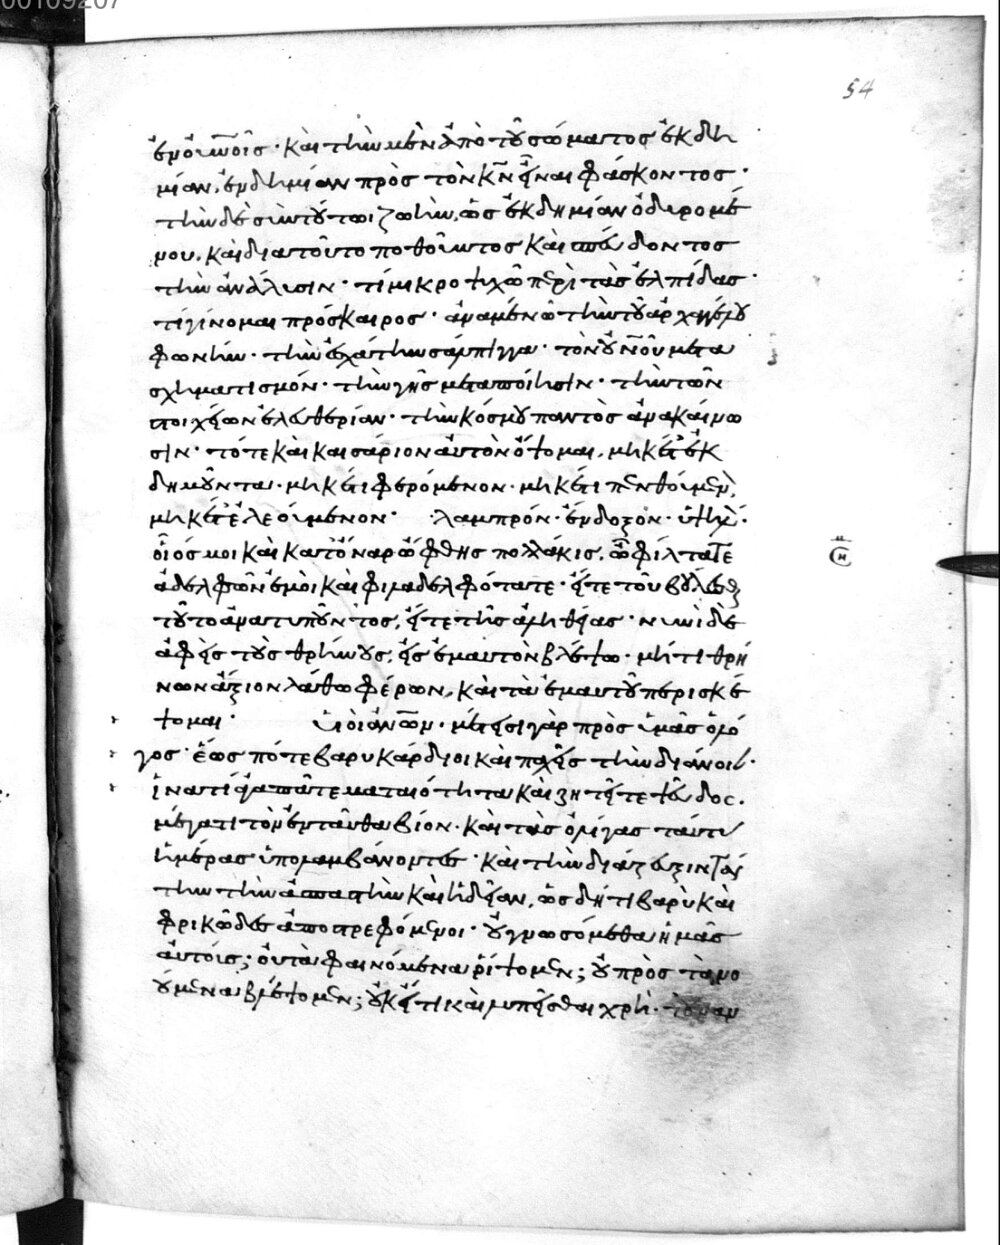 00109207
54
ἐν οὐνοις · καὶ τὴν μὲν ἀπὸ τοῦ σώματος ἐκδη
μίαν, ἐνδημίαν πρὸς τὸν κν εἶναι φάσκοντος ·
τὴν δὲ σὺν τούτωι ζωὴν, ὡς ἐκδημίαν ὀδυρομέ
νου, καὶ διατοῦτο ποθοῦντος καὶ σπεύδοντος
τὴν ἀνάλυσιν · τί μικροψυχῶ περὶ τὰς ἐλπίδας ·
τί γίνομαι πρόσκαιρος · ἀναμένω τὴν τοῦ ἀρχαγγέλου
φωνὴν · τὴν ἐσχάτην σάλπιγγα · τὸν οὐνοῦ μετα
σχηματισμόν · τὴν γῆς μεταποίησιν · τὴν τῶν
στοιχείων ἐλευθερίαν · τὴν κόσμου παντὸς ἀνακαίνω
σιν · τότε καὶ καισάριον αὐτὸν ὄψομαι, μηκέτι ἐκ
δημοῦντα · μηκέτι φερόμενον · μηκέτι πενθούμενον,
μηκέτι ἐλεούμενον · λαμπρόν · ἔνδοξον · ὑψηλόν ·
οἷός μοι καὶ κατ' ὄναρ ὤφθης πολλάκις, ὦ φίλτατε
ἀδελφῶν ἐμοὶ καὶ φιλαδελφότατε · εἴτε τοῦ βούλεσθαι
τοῦτο ἀνατυποῦντος, εἴτε τῆς ἀληθείας · νυνὶ δὲ
ἀφεὶς τοὺς θρήνους, εἰς ἐμαυτὸν βλέψω · μή τι θρή
νων ἄξιον λάθω φέρων, καὶ τὰ ἐμαυτοῦ περισκέ
ψομαι · υἱοὶ ἀνων · μέτεισι γὰρ πρὸς ὑμᾶς ὁ λό
γος · ἕως πότε βαρυκάρδιοι καὶ παχεῖς τὴν διάνοιαν ·
ἵνα τί ἀγαπᾶτε ματαιότητα καὶ ζητεῖτε ψεῦδος ·
μέγα τι τὸν ἐνταῦθα βίον · καὶ τὰς ὀλίγας ταύτας
ἡμέρας ὑπολαμβάνοντες · καὶ τὴν διάζευξιν ταύ
την τὴν ἀσπαστὴν καὶ ἡδεῖαν, ὡς δή τι βαρὺ καὶ
φρικῶδες ἀποστρεφόμενοι · οὐ γνωσόμεθα ἡμᾶς
αὐτούς; οὐ τὰ φαινόμενα ῥίψομεν; οὐ πρὸς τὰ νο
ούμενα βλέψομεν; οὐκ εἴ τι καὶ λυπεῖσθαι χρὴ ·